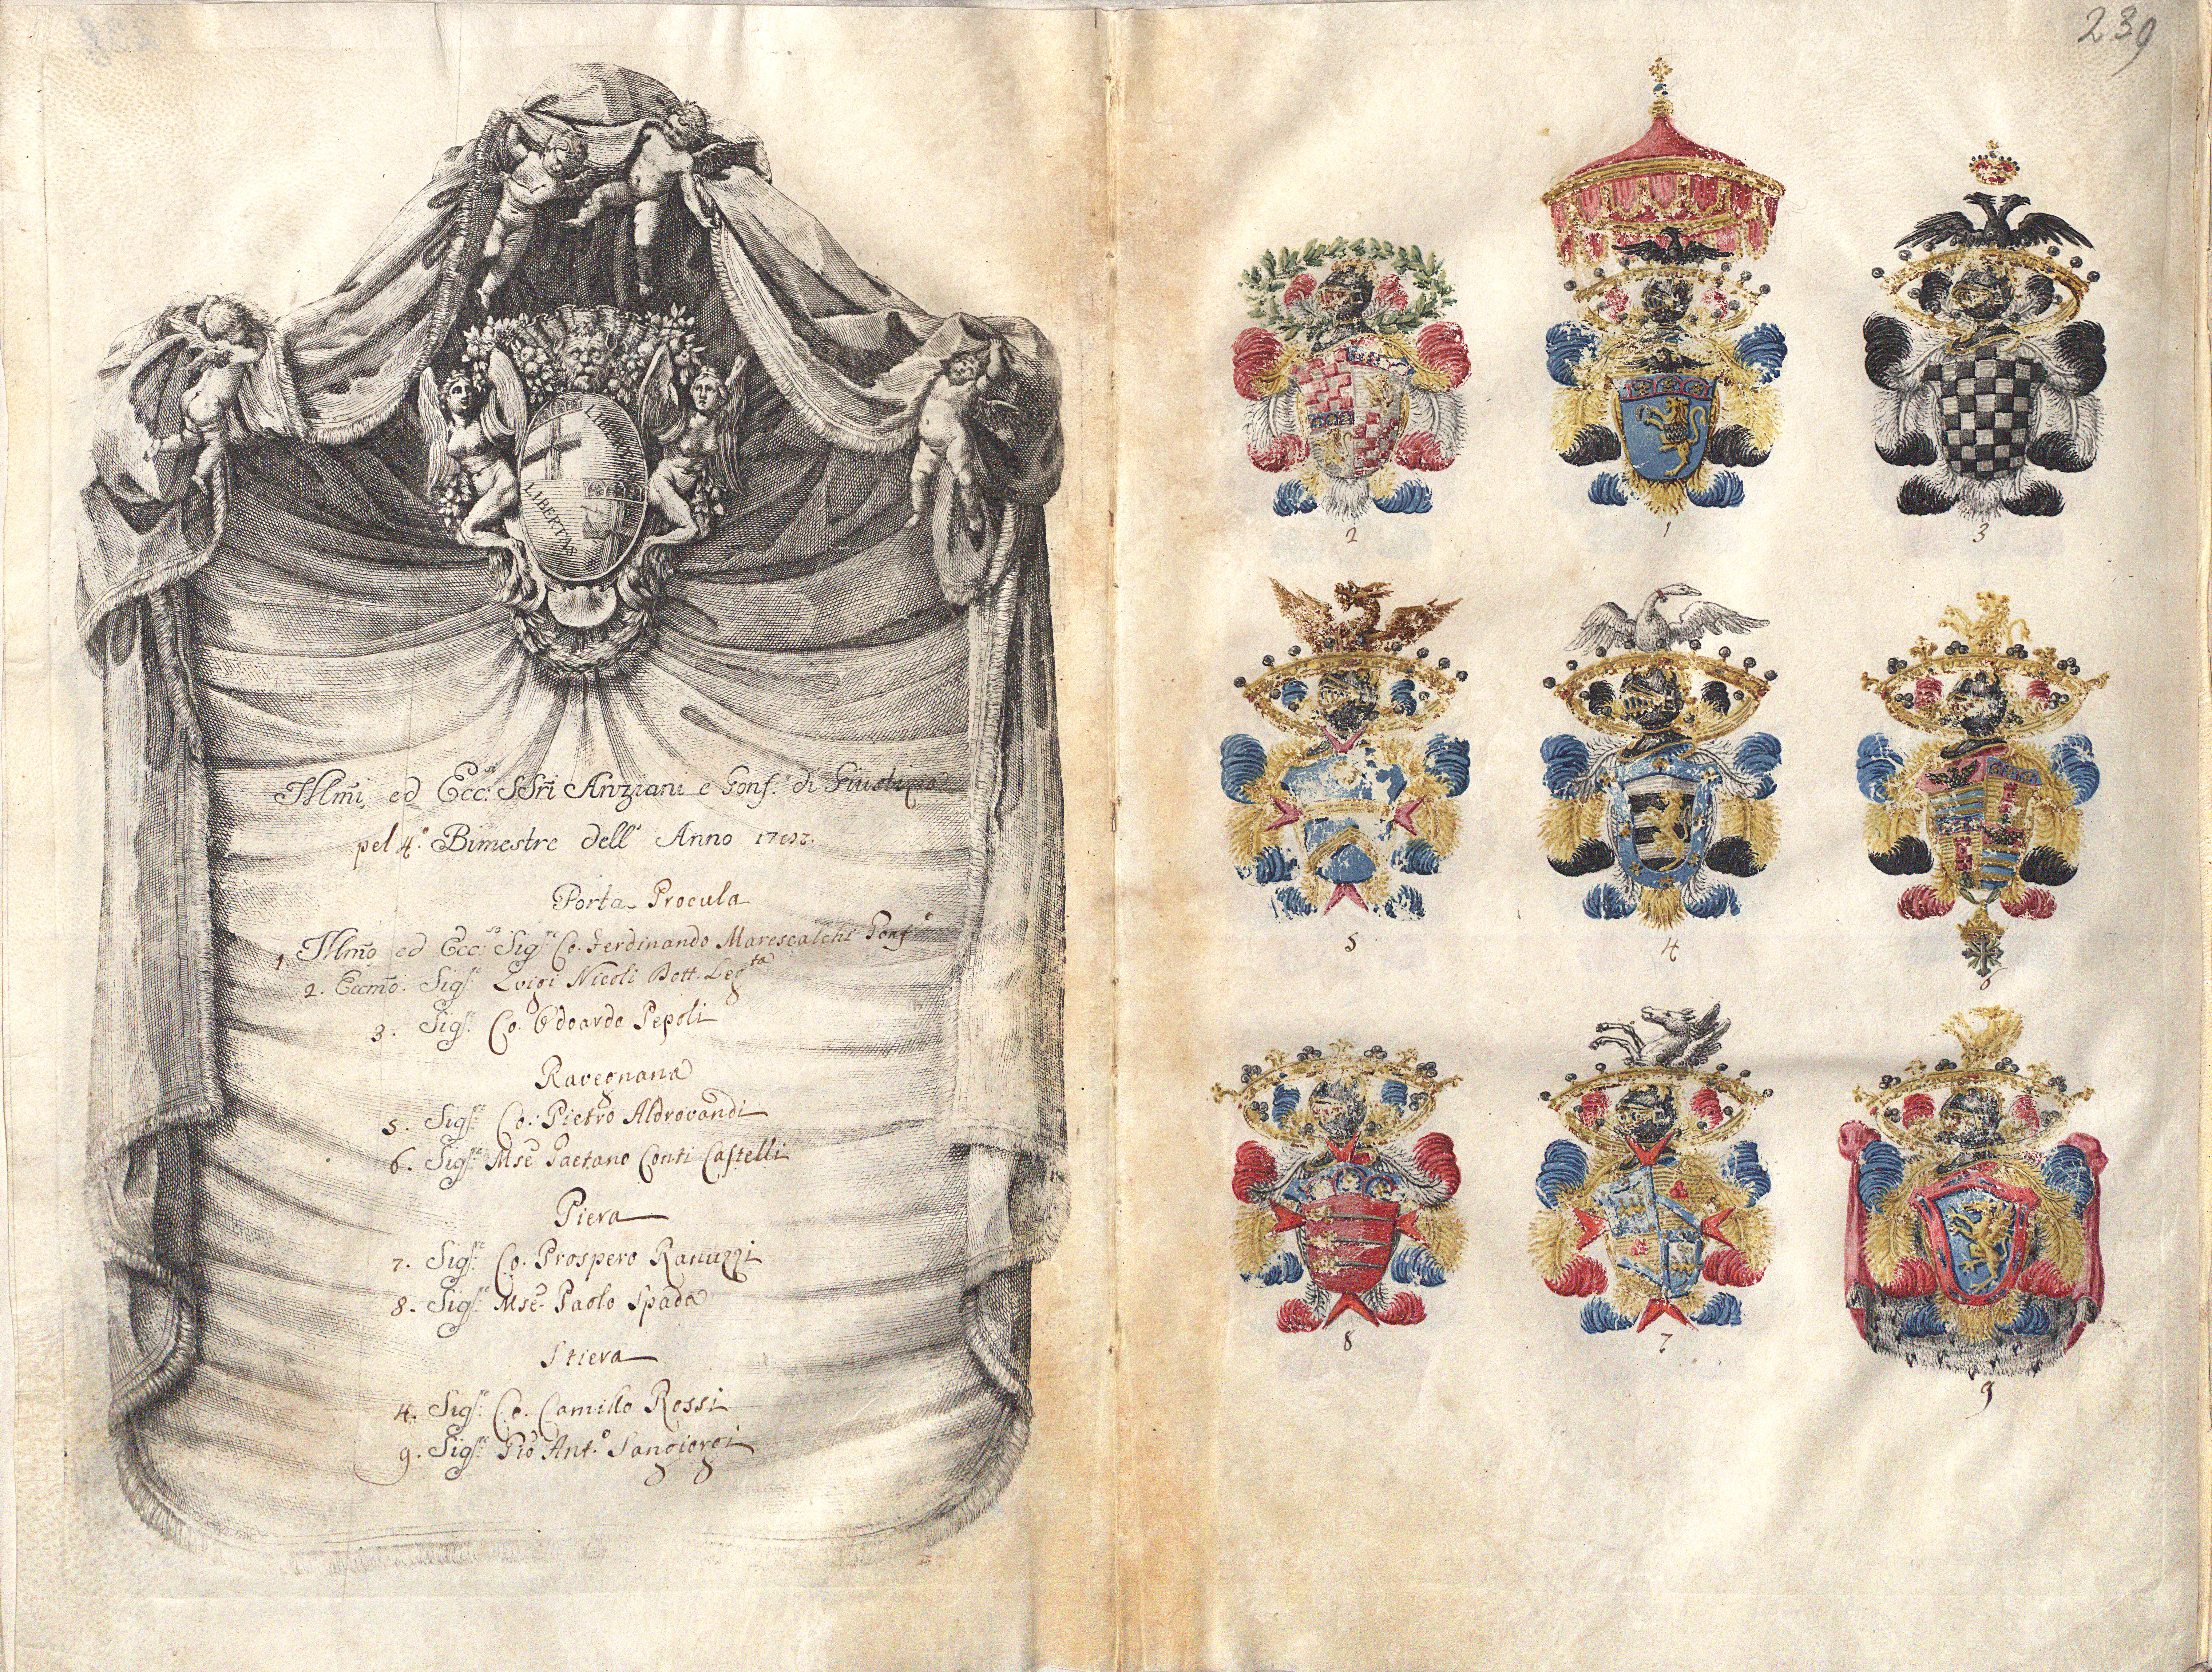 239
LIBERTAS
LIBERTAS
Illm̃i ed Ecc.si SSri Anziani e Gonf.e di Giustizia
pel 4.o Bimestre dell' Anno
Porta Procula
1. Illm̃o ed Ecc.so Sig.re Co. Ferdinando Marescalchi Gonf.e
2. Eccm̃o. Sig.e Luigi Nicoli Dott. Leg.ta
3. Sig.re Co. Odoardo Pepoli
Ravegnana
5. Sig.re Co. Pietro Aldrovandi
6. Sig.re Mse Gaetano Conti Castelli
Piera
7. Sig.re Co. Prospero Ranuzzi
8. Sig.e Mse Paolo Spada
Stiera
4. Sig.e Co. Camillo Rossi
9. Sig.re Gio Ant.o Sangiorgi
2 1 3
5 4 6
8 7 9